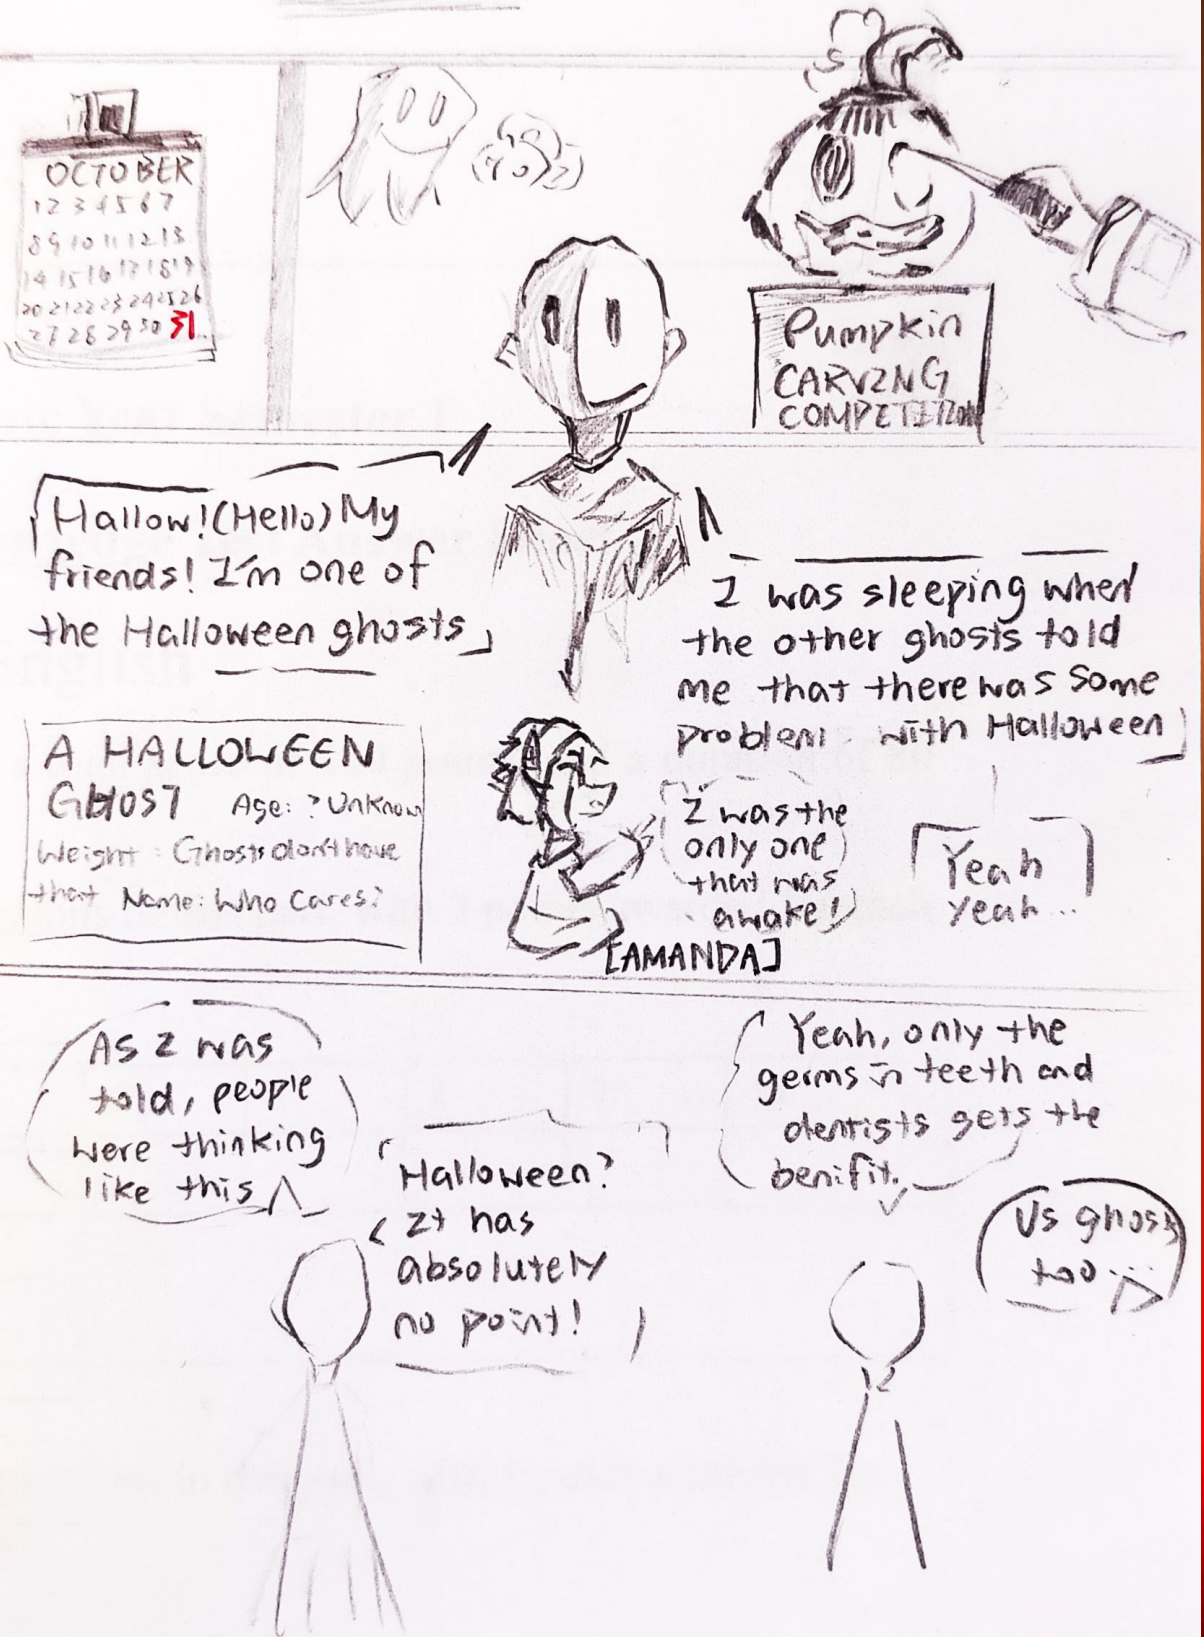 OCTOBER
1 2 3 4 5 6 7
8 9 10 11 12 13
14 15 16 17 18 19
20 21 22 23 24 25 26
27 28 29 30 31
Pumpkin
CARVING
COMPETITION
Hallow!(Hello) My
friends! I'm one of
the Halloween ghosts
I was sleeping when
the other ghosts told
me that there was some
problem with Halloween
A HALLOWEEN
GHOST Age: ? Unknown
Weight: Ghosts don't have
that Name: Who Cares?
I was the
only one
that was
awake!
Yeah
yeah...
[AMANDA]
As I was
told, people
were thinking
like this
Halloween?
It has
absolutely
no point!
Yeah, only the
germs in teeth and
dentists gets the
benifit.
Us ghosts
too...